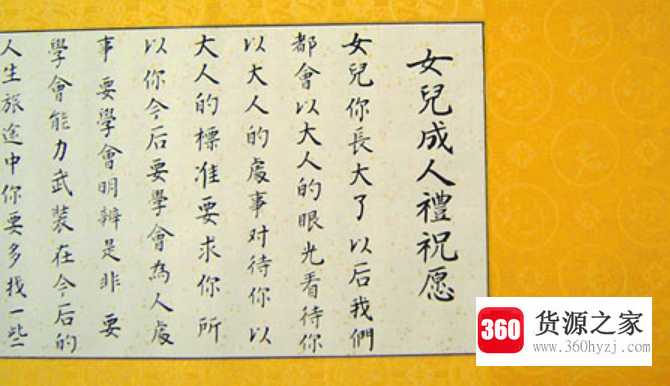 女兒成人禮祝愿
女兒你長大了以后我們
都會以大人的眼光看待你
以大人的處事对待你以
大人的標准要求你所
以你今后要學會為人處
事要學會明辨是非要
學會能力武装在今后的
人生旅途中你要多找一些
360 货源之家
www.360hyzj.com